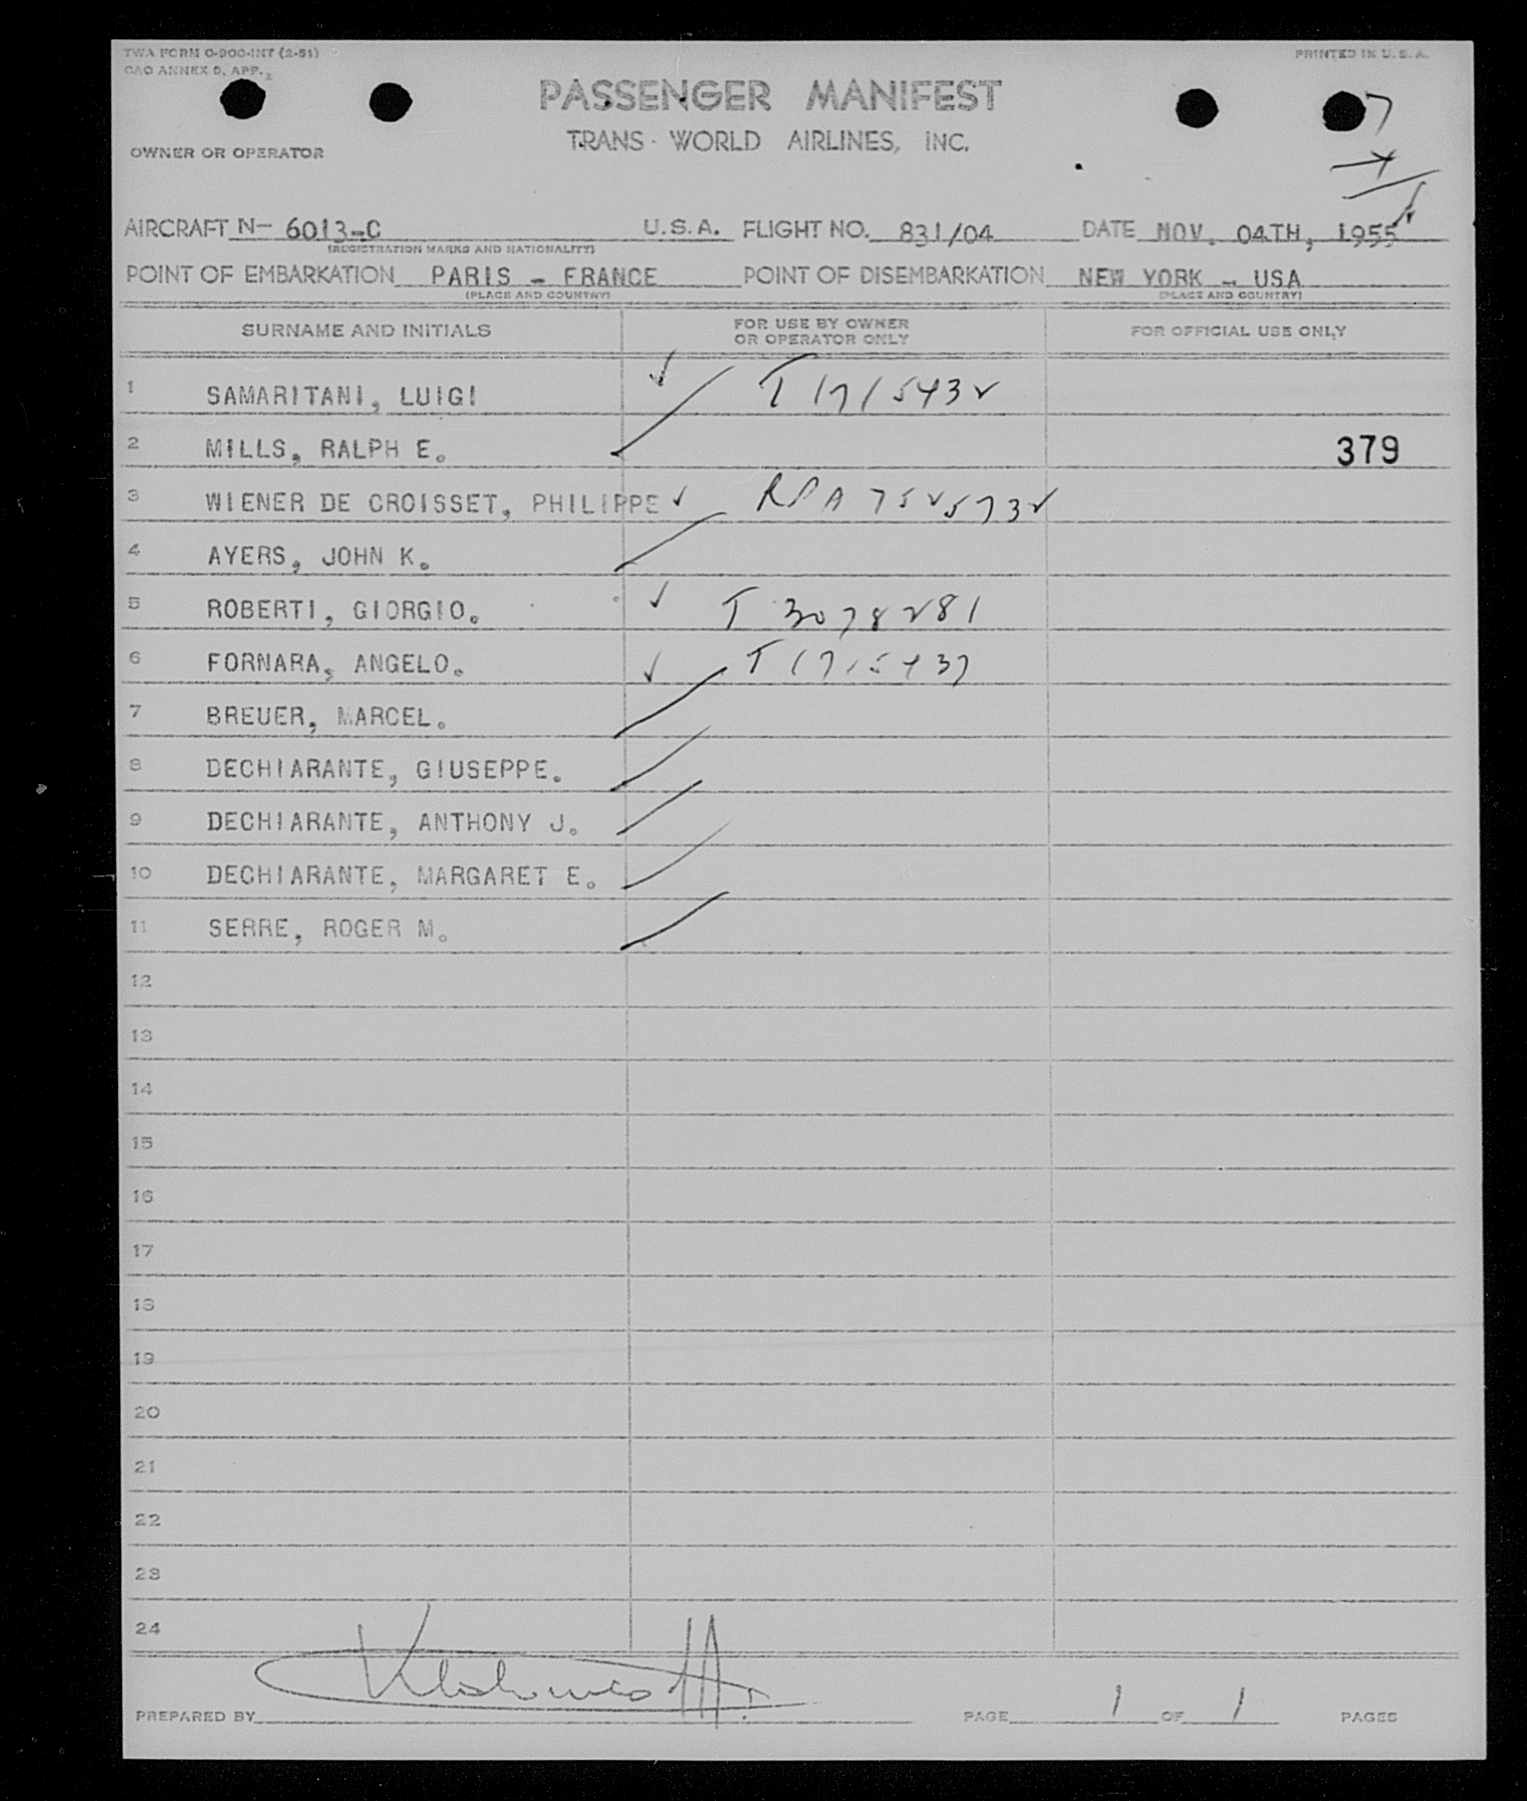 TWA FORM O-900-INT (2-51)
CAO ANNEX 9, APP. 2
PRINTED IN U.S.A.
PASSENGER MANIFEST
TRANS · WORLD AIRLINES, INC.
7
OWNER OR OPERATOR
AIRCRAFT N- 6013-C U.S.A. FLIGHT NO. 831/04 DATE NOV. 04TH, 1955
(REGISTRATION MARKS AND NATIONALITY)
POINT OF EMBARKATION PARIS - FRANCE POINT OF DISEMBARKATION NEW YORK - USA
(PLACE AND COUNTRY) (PLACE AND COUNTRY)
SURNAME AND INITIALS FOR USE BY OWNER OR OPERATOR ONLY FOR OFFICIAL USE ONLY
1 SAMARITANI, LUIGI ✓ T 1715432
2 MILLS, RALPH E. 379
3 WIENER DE CROISSET, PHILIPPE ✓ RPA 7525732
4 AYERS, JOHN K.
5 ROBERTI, GIORGIO. ✓ T 3078281
6 FORNARA, ANGELO. ✓ T 1715437
7 BREUER, MARCEL.
8 DECHIARANTE, GIUSEPPE.
9 DECHIARANTE, ANTHONY J.
10 DECHIARANTE, MARGARET E.
11 SERRE, ROGER M.
12
13
14
15
16
17
18
19
20
21
22
23
24
PREPARED BY PAGE 1 OF 1 PAGES